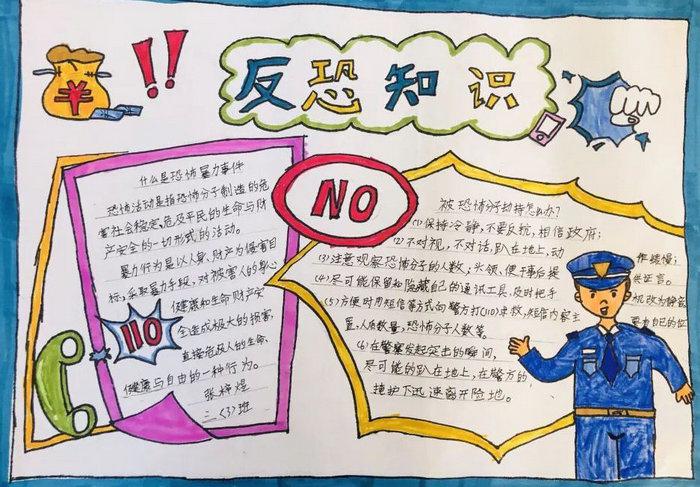 反恐知识
什么是恐怖暴力事件
恐怖活动是指恐怖分子制造的危
害社会稳定、危及平民的生命与财
产安全的一切形式的活动。
暴力行为是以人身、财产为侵害目
标,采取暴力手段,对被害人的身心
健康和生命财产安
全造成极大的损害,
直接危及人的生命、
健康与自由的一种行为。
张梓煜
三〈3〉班
110
NO
被恐怖分子劫持怎么办?
(1)保持冷静,不要反抗,相信政府;
(2)不对视,不对话,趴在地上,动
作要缓慢;
(3)注意观察恐怖分子的人数,头领,便于事后提
供证言。
(4)尽可能保留和隐藏自己的通讯工具,及时把手
机改为静音
(5)方便时用短信等方式向警方打(110)求救,短信内容主
要为自己的位
置,人质数量,恐怖分子人数等。
(6)在警察发起突击的瞬间,
尽可能的趴在地上,在警方的
掩护下迅速离开险地。